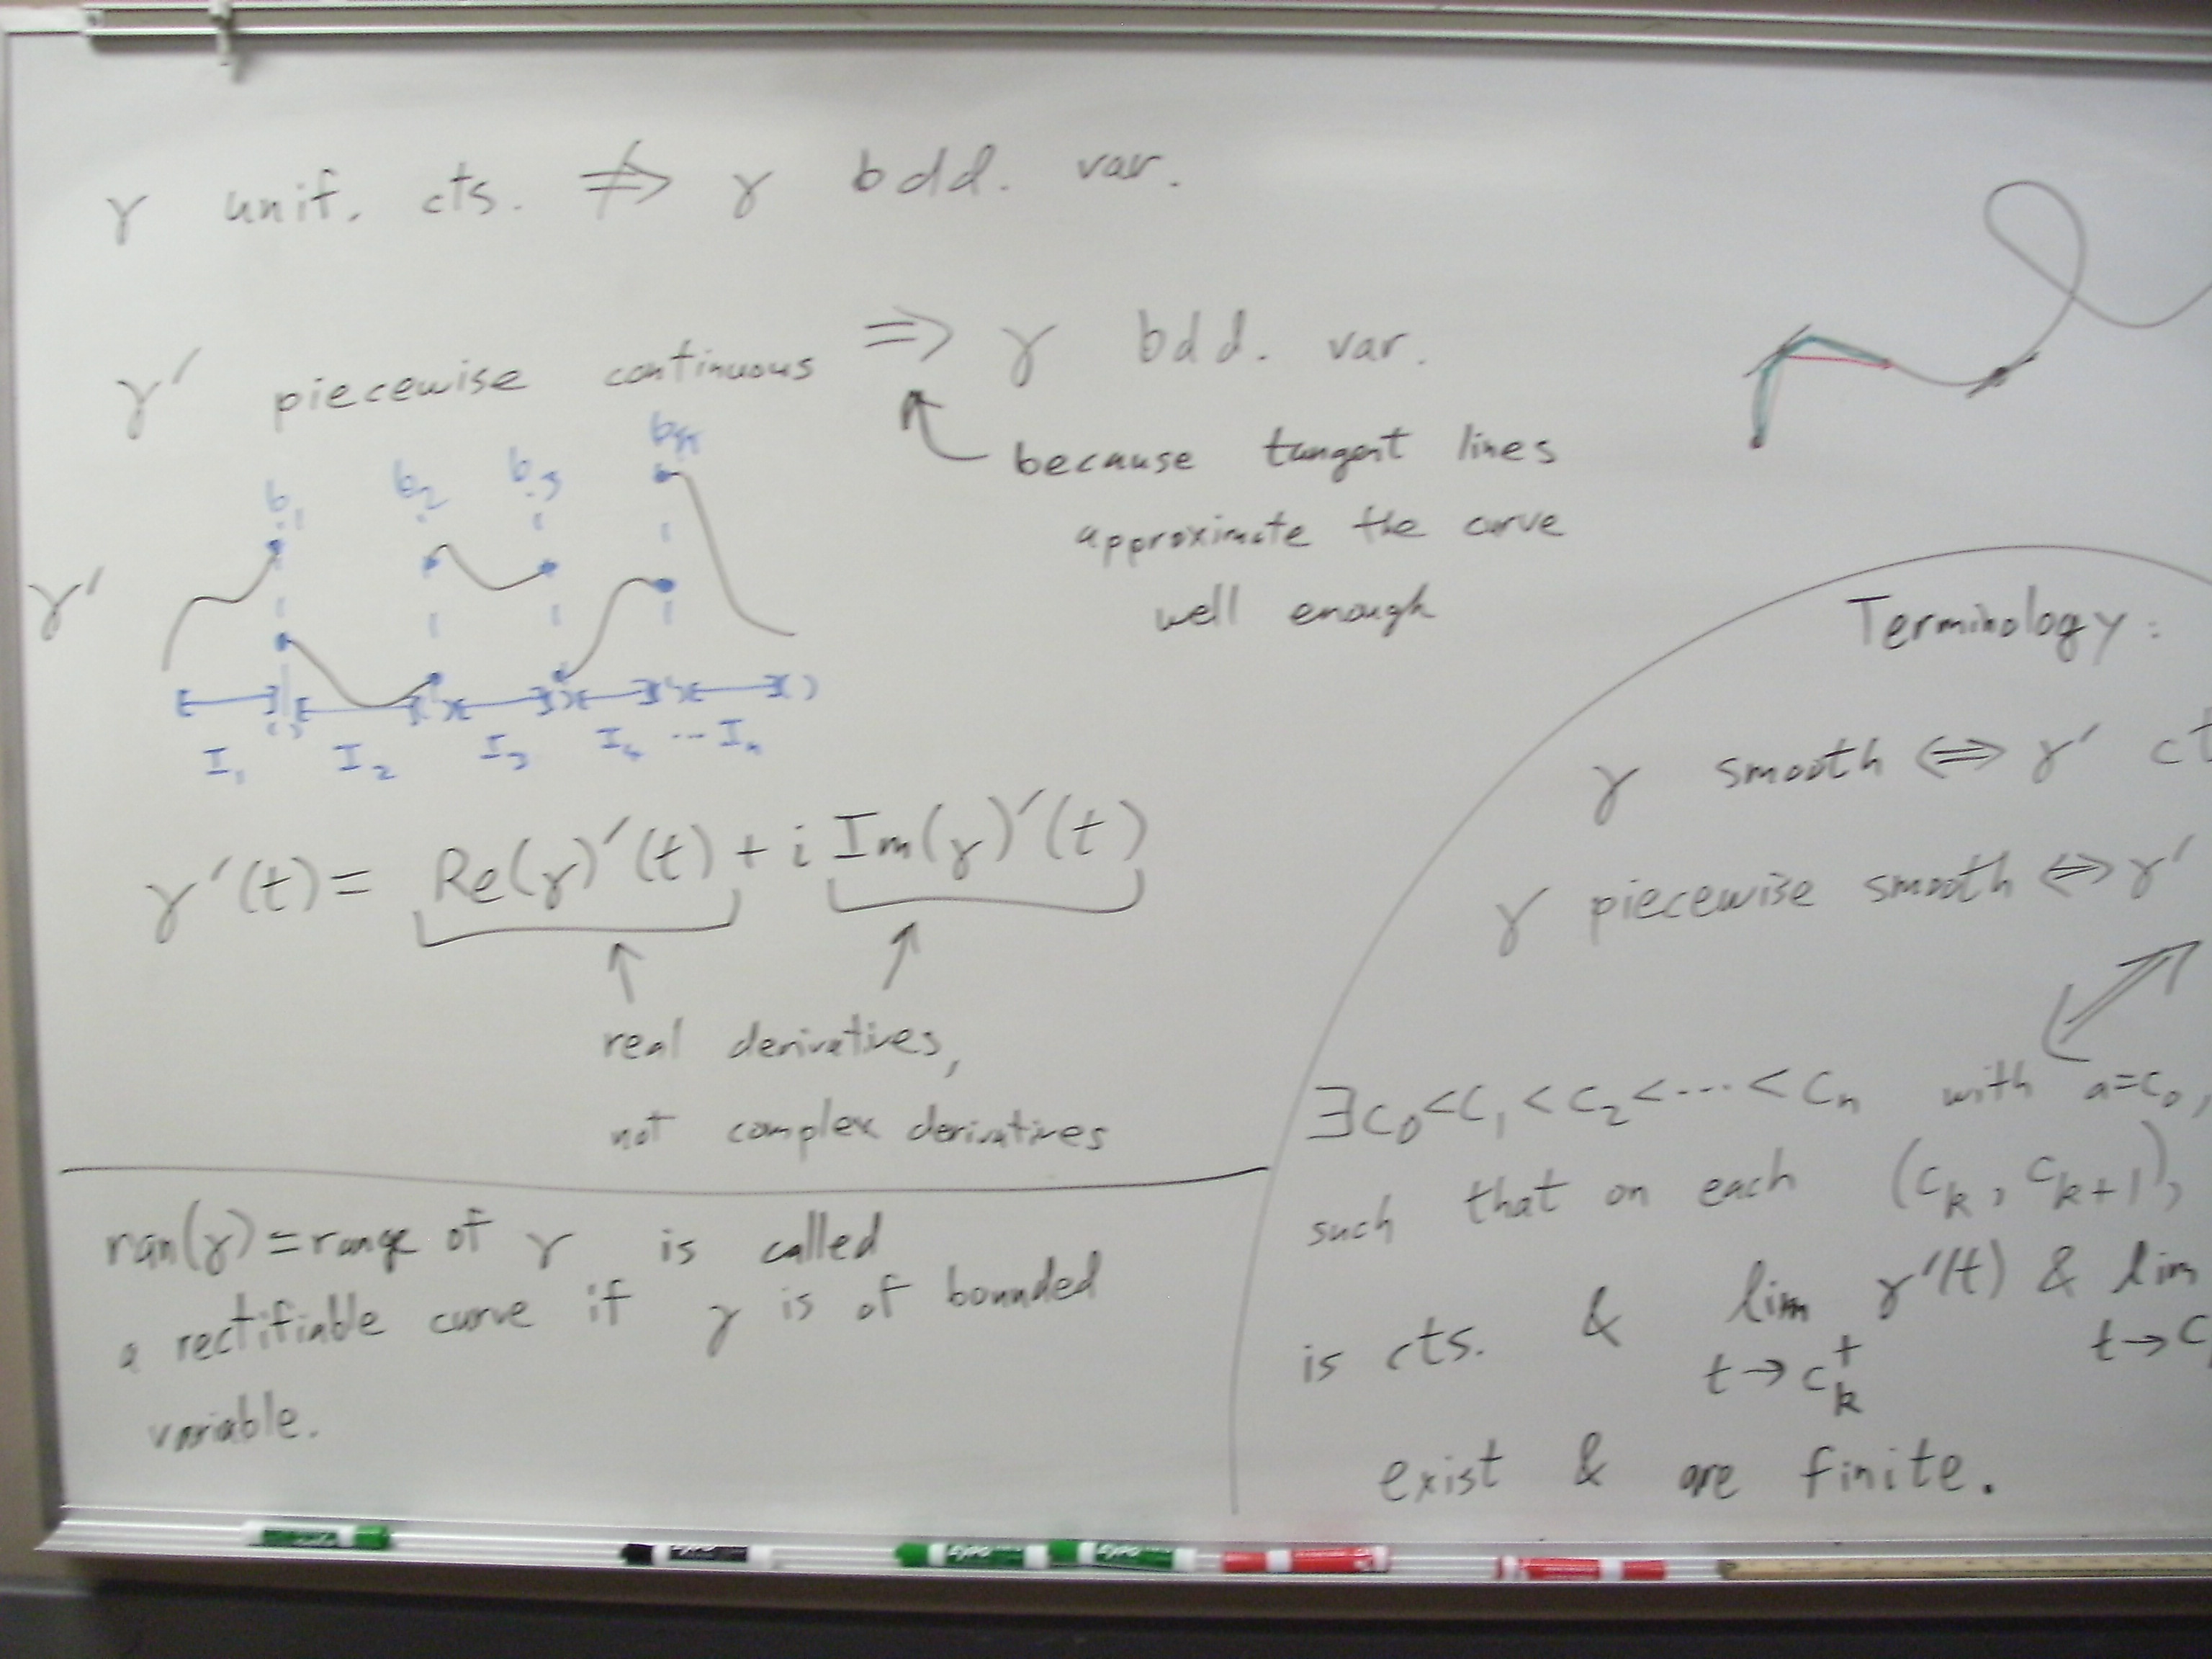 γ unif. cts. ⇏ γ bdd. var.
γ' piecewise continuous ⇒ γ bdd. var.
because tangent lines
approximate the curve
well enough
b₁ b₂ b₃
γ'
I₁ I₂ I₃ I₄ ... Iₙ
γ'(t) = Re(γ)'(t) + i Im(γ)'(t)
real derivatives,
not complex derivatives
ran(γ) = range of γ is called
a rectifiable curve if γ is of bounded
variable.
Terminology:
γ smooth ⇔ γ' ct
γ piecewise smooth ⇔ γ'
∃ c₀ < c₁ < c₂ < ... < cₙ with a = c₀,
such that on each (cₖ, cₖ₊₁),
is cts. & lim γ'(t) & lim
t → cₖ⁺ t → c
exist & are finite.
EXPO EXPO